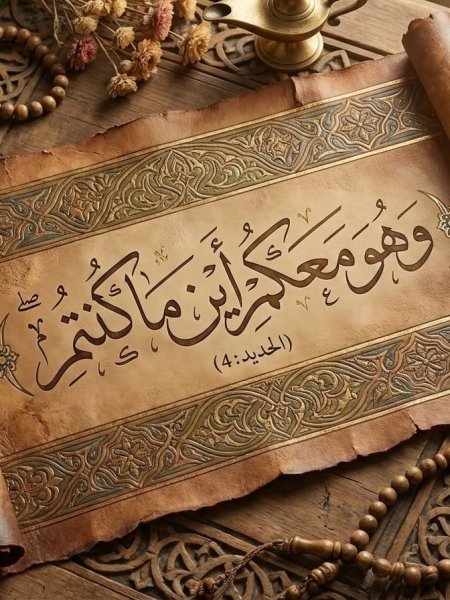 وَهُوَ مَعَكُمْ أَيْنَ مَا كُنْتُمْ
(الحديد: 4)